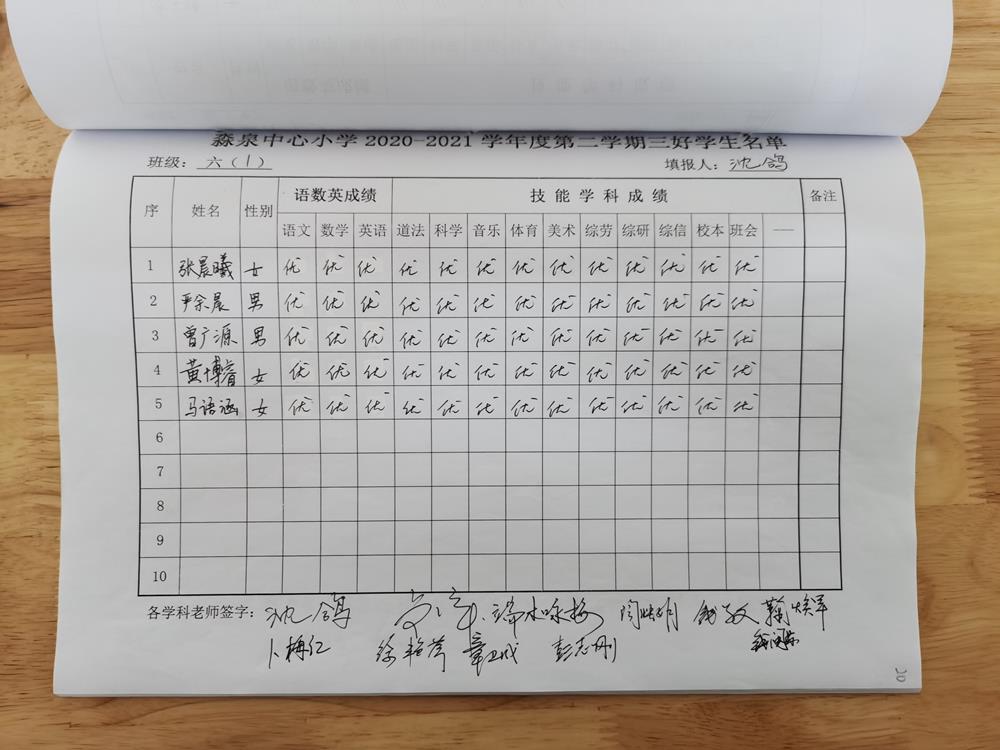 淼泉中心小学2020-2021学年度第二学期三好学生名单
班级：六（1） 填报人：沈鸽
序 姓名 性别 语数英成绩 技能学科成绩 备注
语文 数学 英语 道法 科学 音乐 体育 美术 综劳 综研 综信 校本 班会 —
1 张晨曦 女 优 优 优 优 优 优 优 优 优 优 优 优 优
2 严余晨 男 优 优 优 优 优 优 优 优 优 优 优 优 优
3 曾广源 男 优 优 优 优 优 优 优 优 优 优 优 优 优
4 黄博睿 女 优 优 优 优 优 优 优 优 优 优 优 优 优
5 马语涵 女 优 优 优 优 优 优 优 优 优 优 优 优 优
6
7
8
9
10
各学科老师签字：沈鸽 端木咏梅
卜梅仁 徐艳芳 章卫成 彭志刚
20